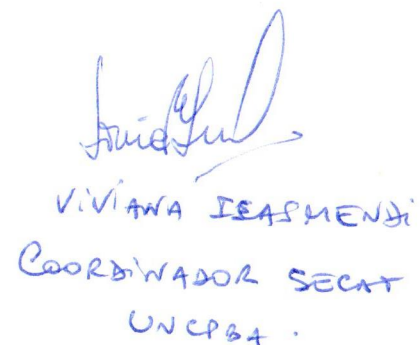 VIVIANA ISASMENDI
COORDINADOR SECAT
UNCPBA.